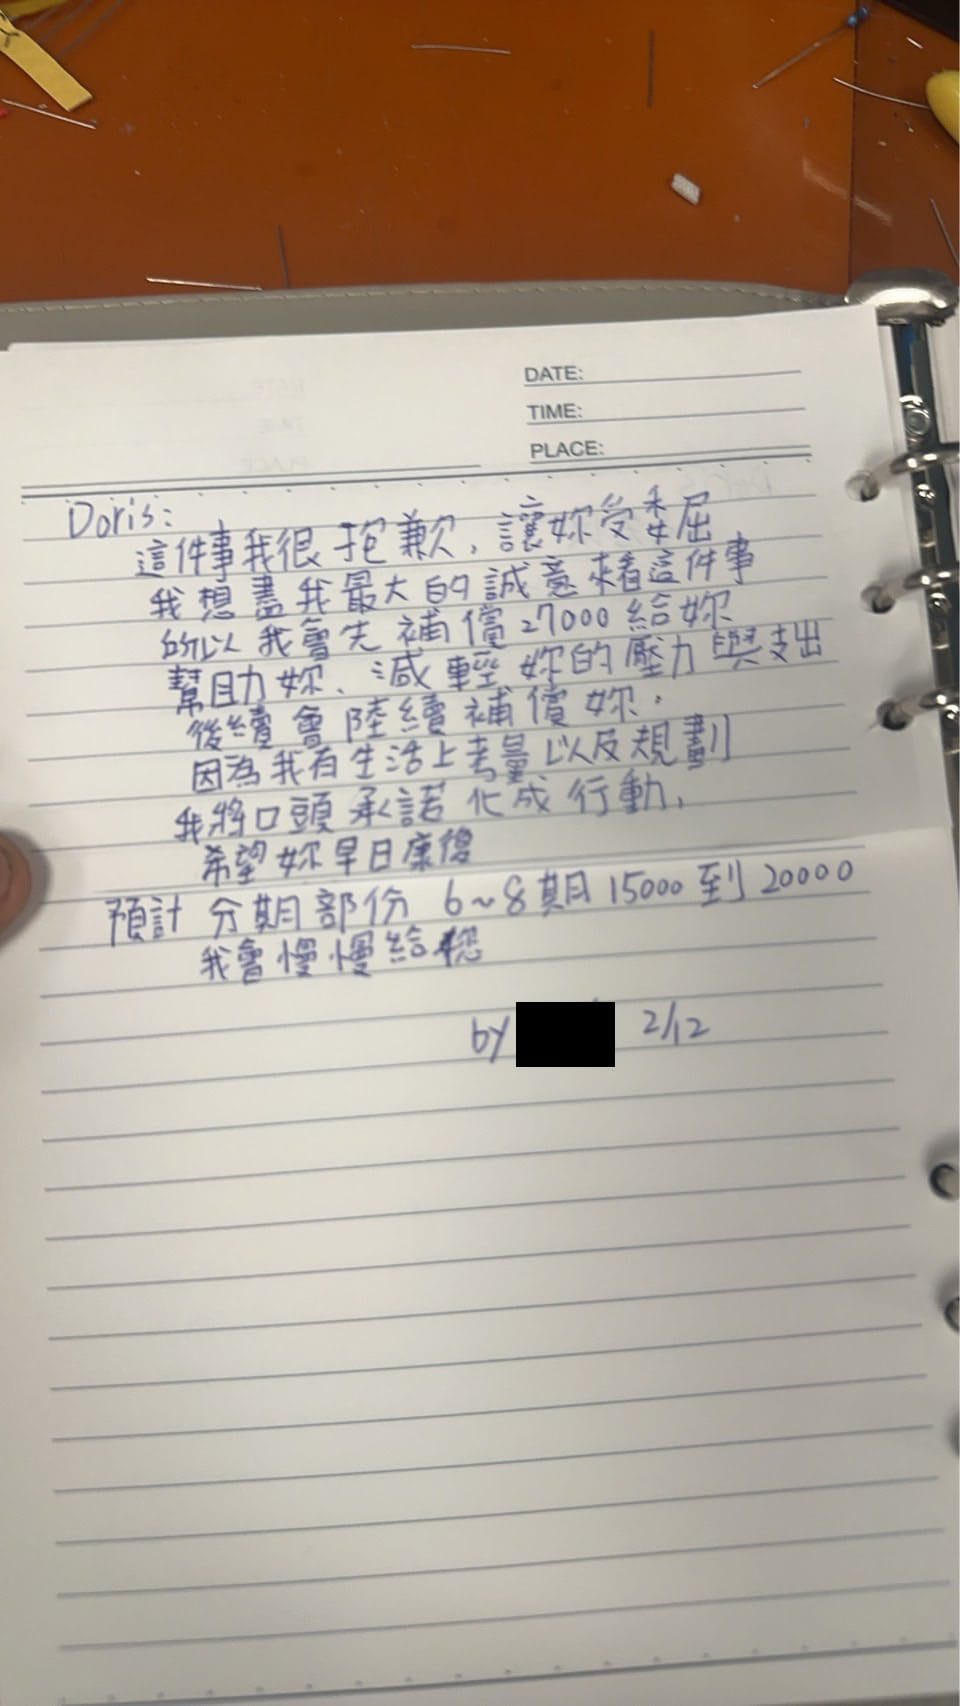 DATE:
TIME:
PLACE:
Doris:
這件事我很抱歉，讓妳受委屈
我想盡我最大的誠意來看這件事
所以我會先補償27000給妳
幫助妳、減輕妳的壓力與支出
後續會陸續補償妳．
因為我有生活上考量以及規劃
我將口頭承諾化成行動，
希望妳早日康復
預計分期部份 6~8期15000到20000
我會慢慢給您
by 2/12